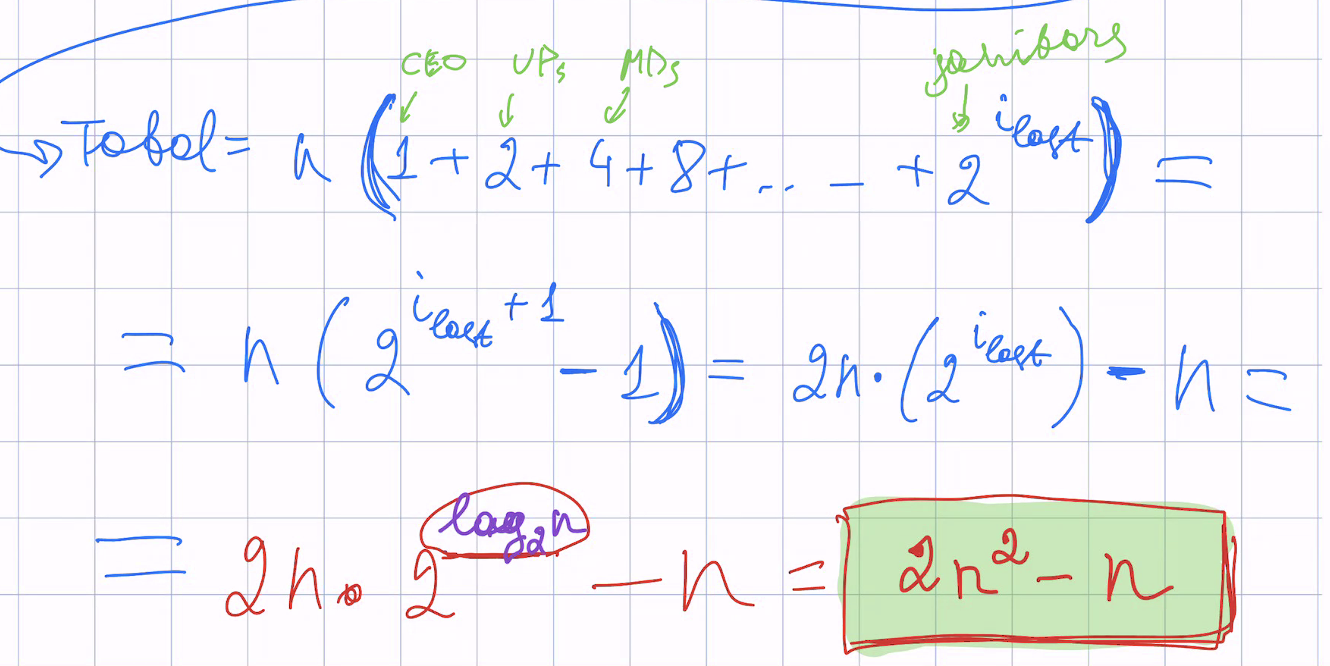 CEO VPs MDs janitors
Total = n (1 + 2 + 4 + 8 + .. - + 2^{i_{last}}) =
= n (2^{i_{last} + 1} - 1) = 2n · (2^{i_{last}}) - n =
= 2n · 2^{log_2 n} - n = 2n^2 - n